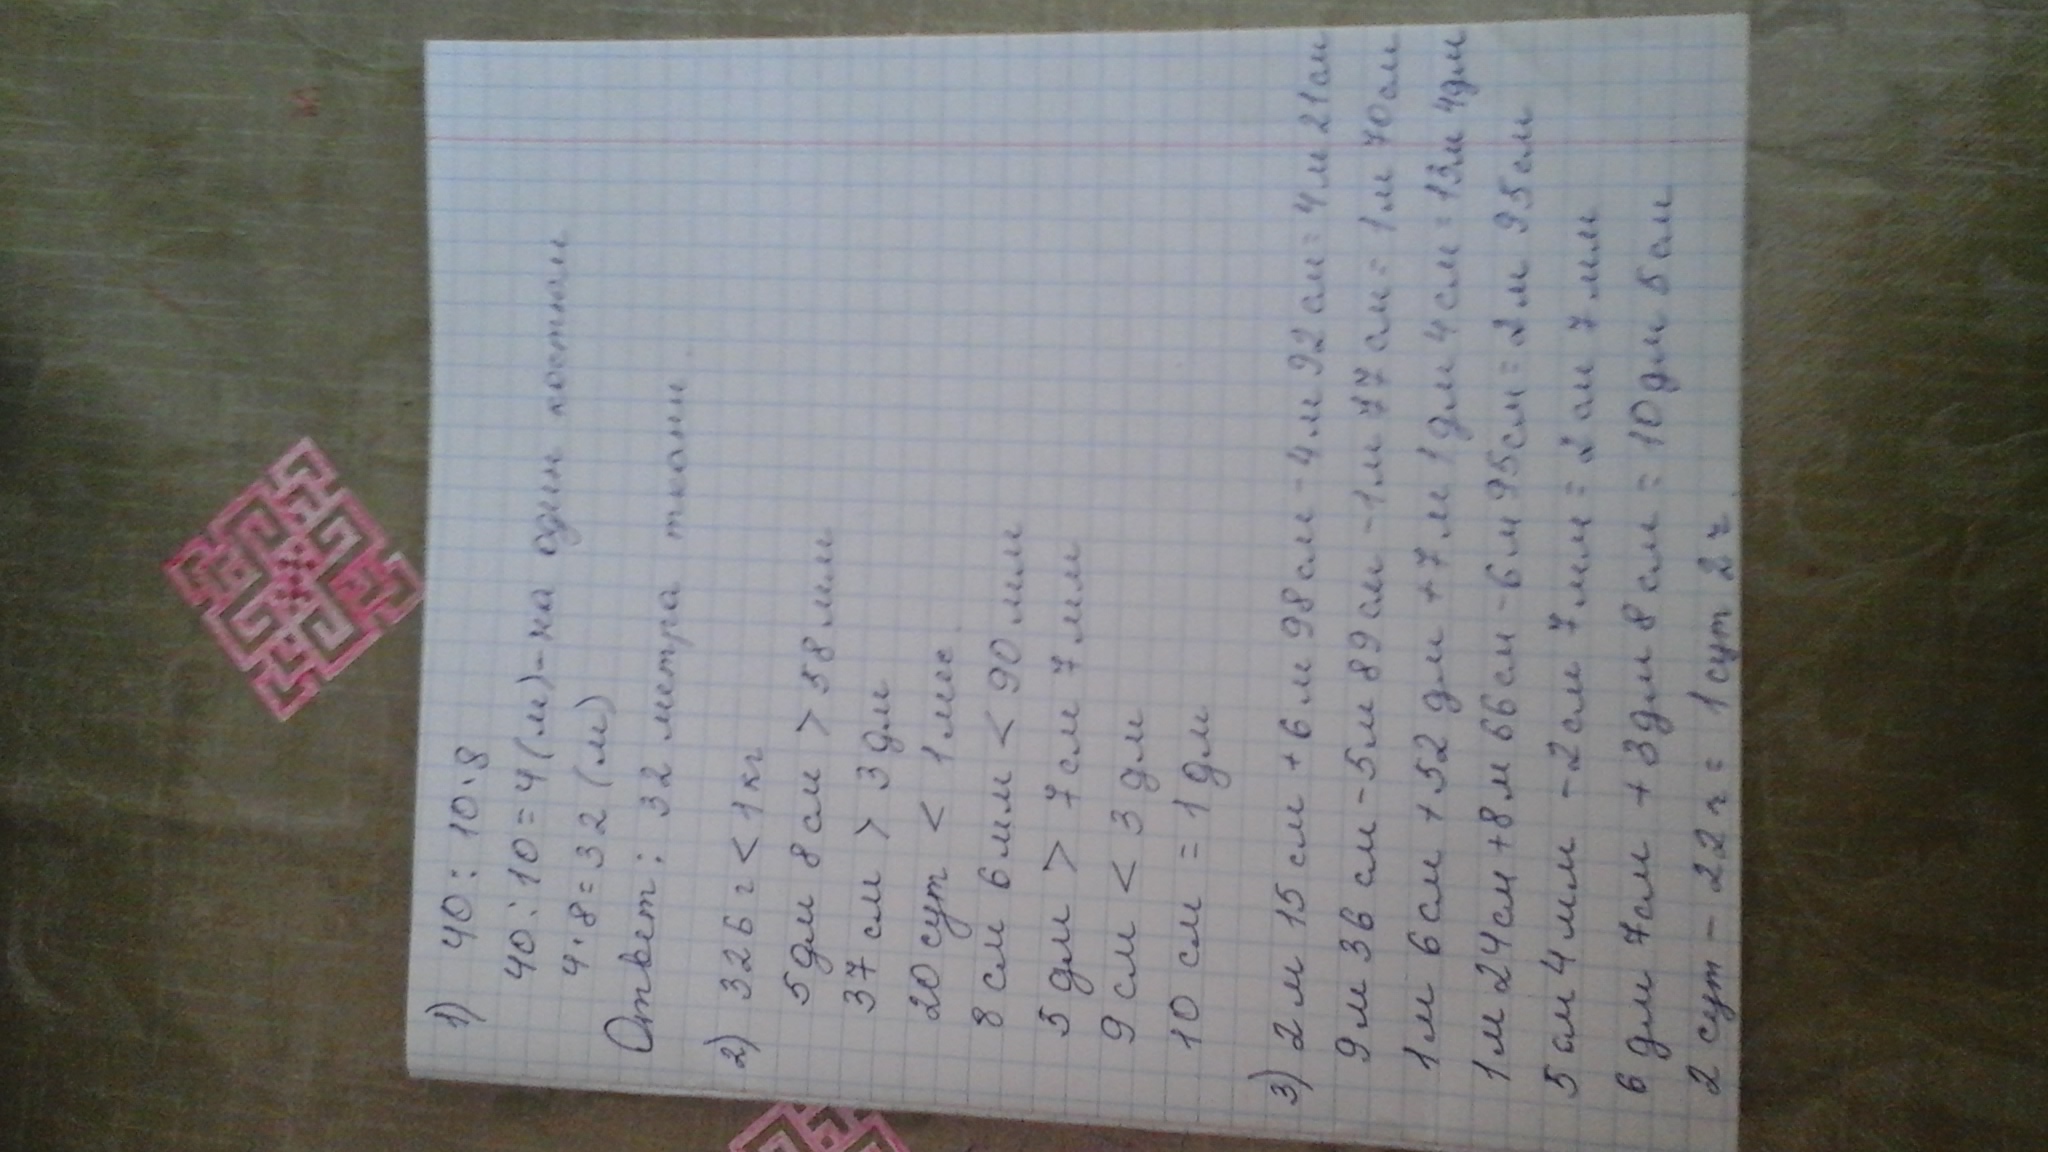 1) 40 : 10 · 8
40 : 10 = 4 (м) - на один костюм
4 · 8 = 32 (м)
Ответ: 32 метра ткани
2) 326 г < 1 кг
5 дм 8 см > 58 мм
37 см > 3 дм
20 сут < 1 мес
8 см 6 мм < 90 мм
5 дм > 7 см 7 мм
9 см < 3 дм
10 см = 1 дм
3) 2 м 15 см + 6 м 98 см - 4 м 92 см = 4 м 21 см
9 м 36 см - 5 м 89 см - 1 м 77 см = 1 м 70 см
1 м 6 см + 52 дм + 7 м 1 дм 4 см = 13 м 4 дм
1 м 24 см + 8 м 66 см - 6 м 95 см = 2 м 95 см
5 см 4 мм - 2 см 7 мм = 2 см 7 мм
6 дм 7 см + 3 дм 8 см = 10 дм 5 см
2 сут - 22 ч = 1 сут 2 ч